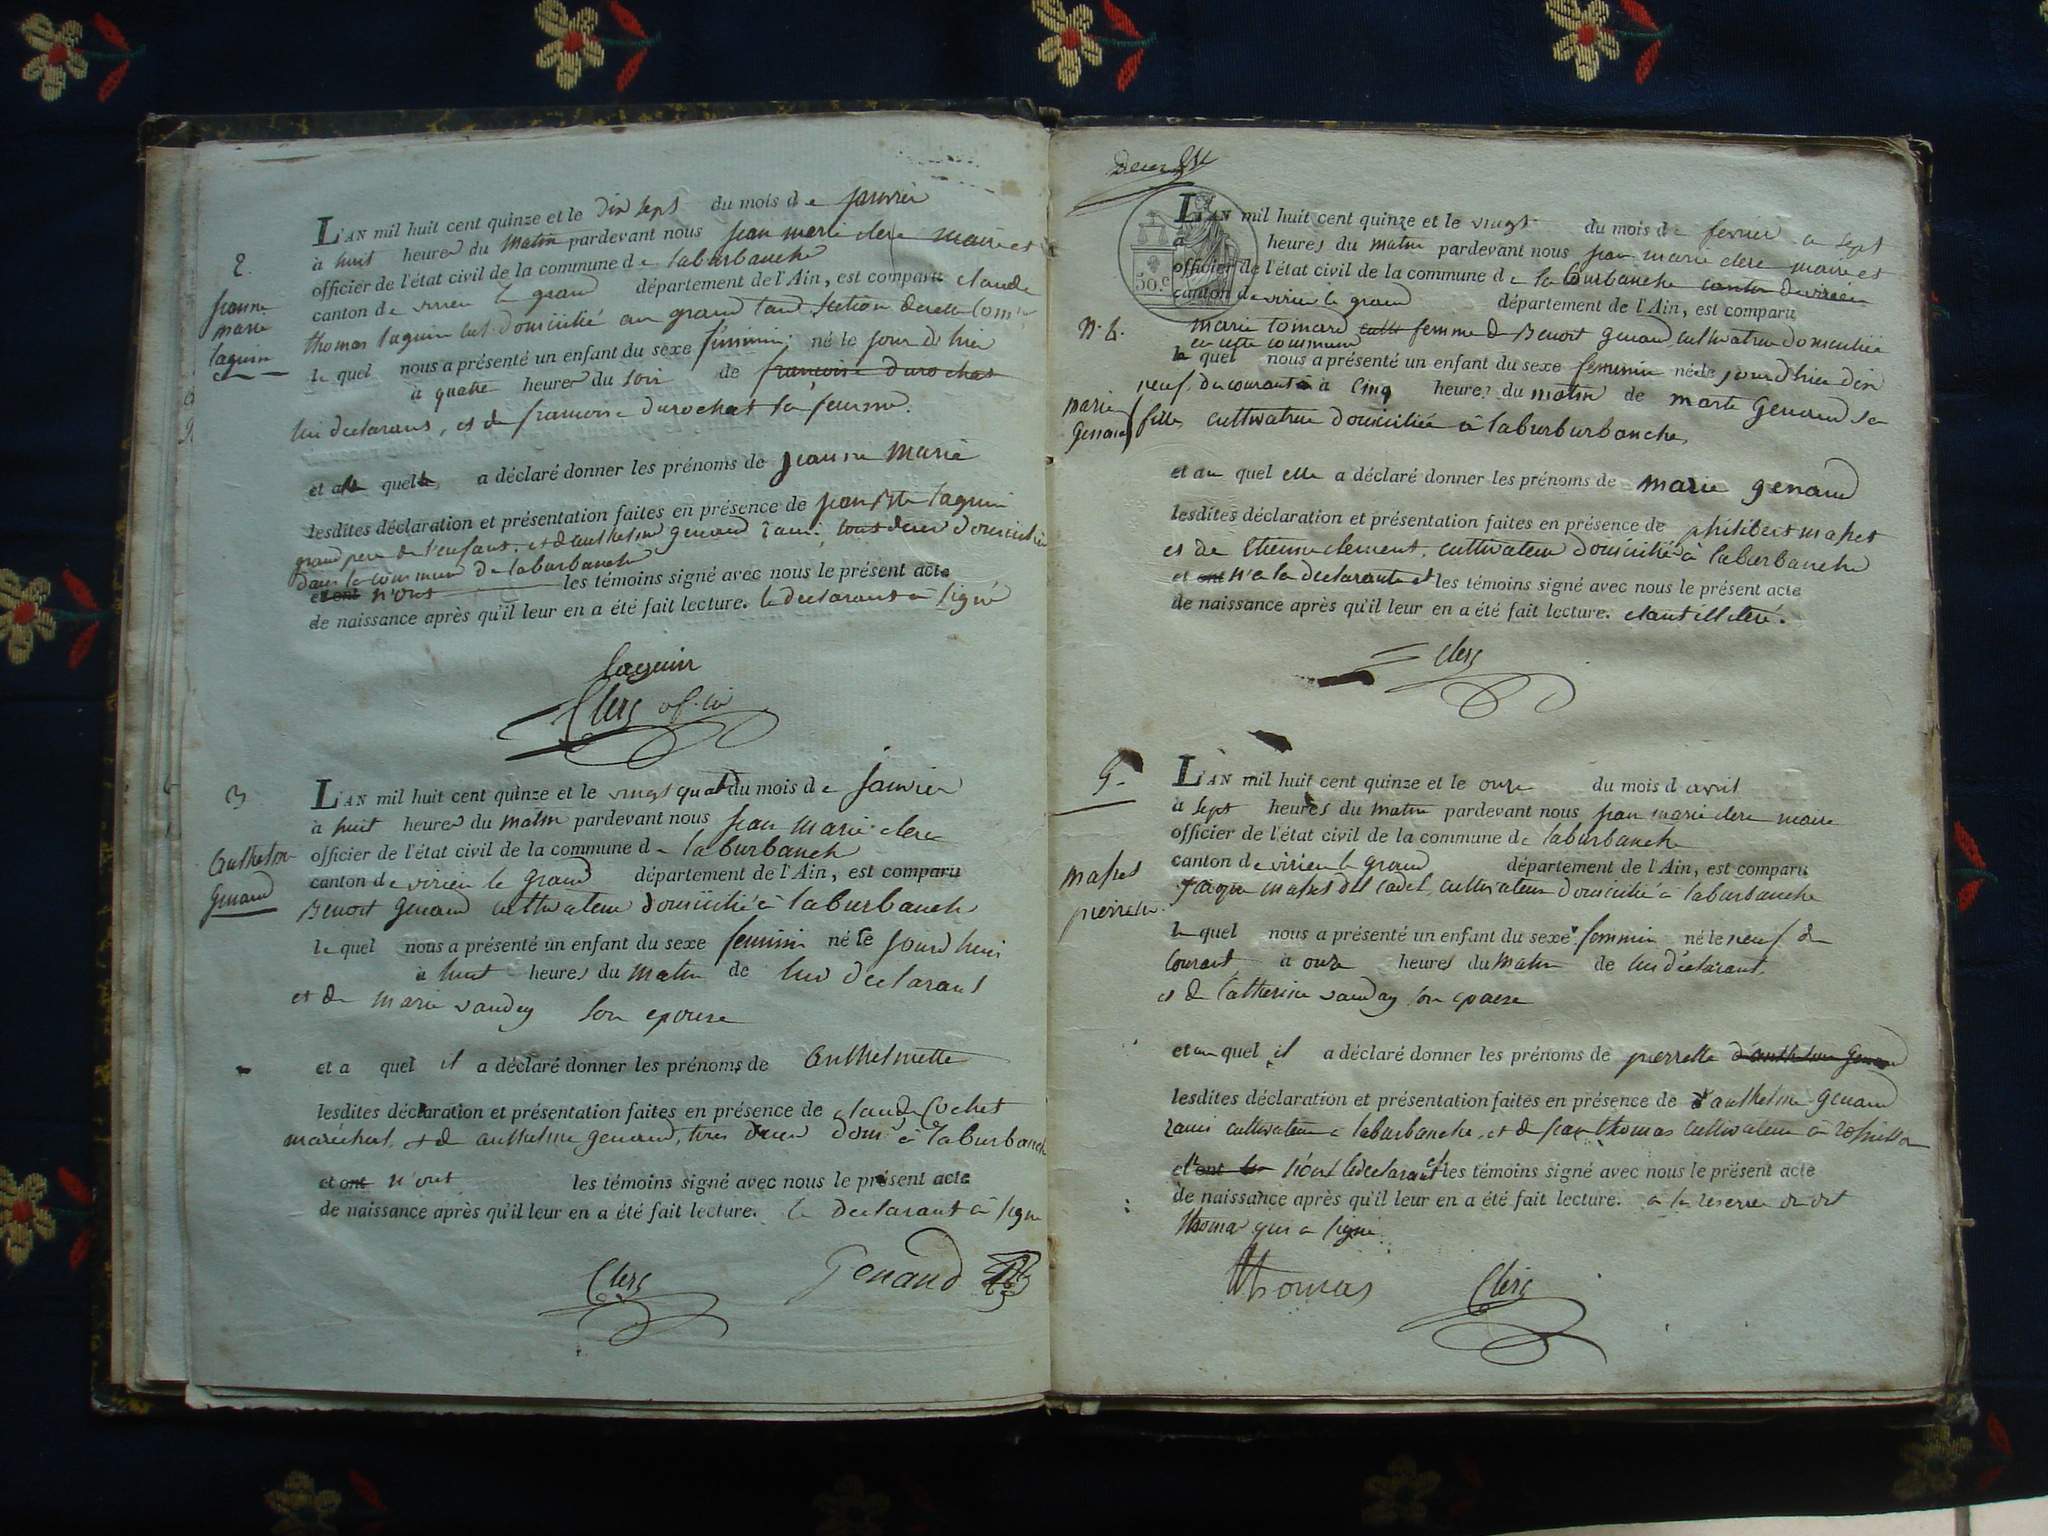 2.
jeanne
marie
laguin
L'AN mil huit cent quinze et le dix sept du mois de janvier
à huit heures du matin pardevant nous jean marie clerc maire et
officier de l'état civil de la commune de laburbanche
canton de virieu le grand département de l'Ain, est comparu claude
thomas laguin cult. domicilié au grand section
le quel nous a présenté un enfant du sexe féminin né le jour d'hier
à quatre heures du soir de francoise durochat
lui declarant, et de francoise durochat sa femme.
et a quel a déclaré donner les prénoms de jeanne marie
lesdites déclaration et présentation faites en présence de jean Bte laguin
grand pere de l'enfant, et d'anthelme genand tous deux domicilié
dans la commune de laburbanche
et ont n'ont les témoins signé avec nous le présent acte
de naissance après qu'il leur en a été fait lecture. le declarant à signé
laguin
Clerc of. civ
3
Anthelme
Genand
L'AN mil huit cent quinze et le vingt quat du mois de janvier
à huit heures du matin pardevant nous jean marie clerc
officier de l'état civil de la commune de laburbanch
canton de virieu le grand département de l'Ain, est comparu
Benoit genand cultivateur domicilié à laburbanch
le quel nous a présenté un enfant du sexe feminin né le jourd'huis
à huit heures du matin de lui declarant
et de marie vauday son epouse
et a quel il a déclaré donner les prénoms de anthelmette
lesdites déclaration et présentation faites en présence de claude cochet
maréchal, et de anthelme genand, tous deux dom. à laburbanch
et ont n'ont les témoins signé avec nous le présent acte
de naissance après qu'il leur en a été fait lecture. le declarant à signé
Clerc Genand
50.c
N. 4.
marie
Genand
L'AN mil huit cent quinze et le vingt du mois de fevrier a sept
à heures du matin pardevant nous jean marie clerc maire et
officier de l'état civil de la commune de la burbanche canton de virieu
canton de virieu le grand département de l'Ain, est comparu
marie toinard femme de Benoit genand, cultivatrice domiciliée
en cette commune
le quel nous a présenté un enfant du sexe feminin né le jourd'hier dix
neuf du courant à cinq heures du matin de marte genand sa
fille, cultivatrice domiciliée à laburburbanche,
et au quel elle a déclaré donner les prénoms de marie genand
lesdites déclaration et présentation faites en présence de philibert
et de Etienne clement, cultivateur domicilié à laburbanche
et ont n'a la declarante et les témoins signé avec nous le présent acte
de naissance après qu'il leur en a été fait lecture. etant illiteré.
Clerc
5.
pierrette
L'AN mil huit cent quinze et le onze du mois d avril
à sept heures du matin pardevant nous jean marie clerc maire
officier de l'état civil de la commune de laburbanche
canton de virieu le grand département de l'Ain, est comparu
cadet, cultivateur domicilié à laburbanche
le quel nous a présenté un enfant du sexe feminin né le neuf du
courant à onze heures du matin de lui déclarant,
et de catherine vauday son epouse
et au quel il a déclaré donner les prénoms de pierrette d'anthelme genand
lesdites déclaration et présentation faites en présence de d'anthelme genand
cultivateur à laburbanche, et de jean thomas cultivateur à
et ont n'ont le declarant et les témoins signé avec nous le présent acte
de naissance après qu'il leur en a été fait lecture. a la reserve dudit
thomas qui a signé
Thomas Clerc